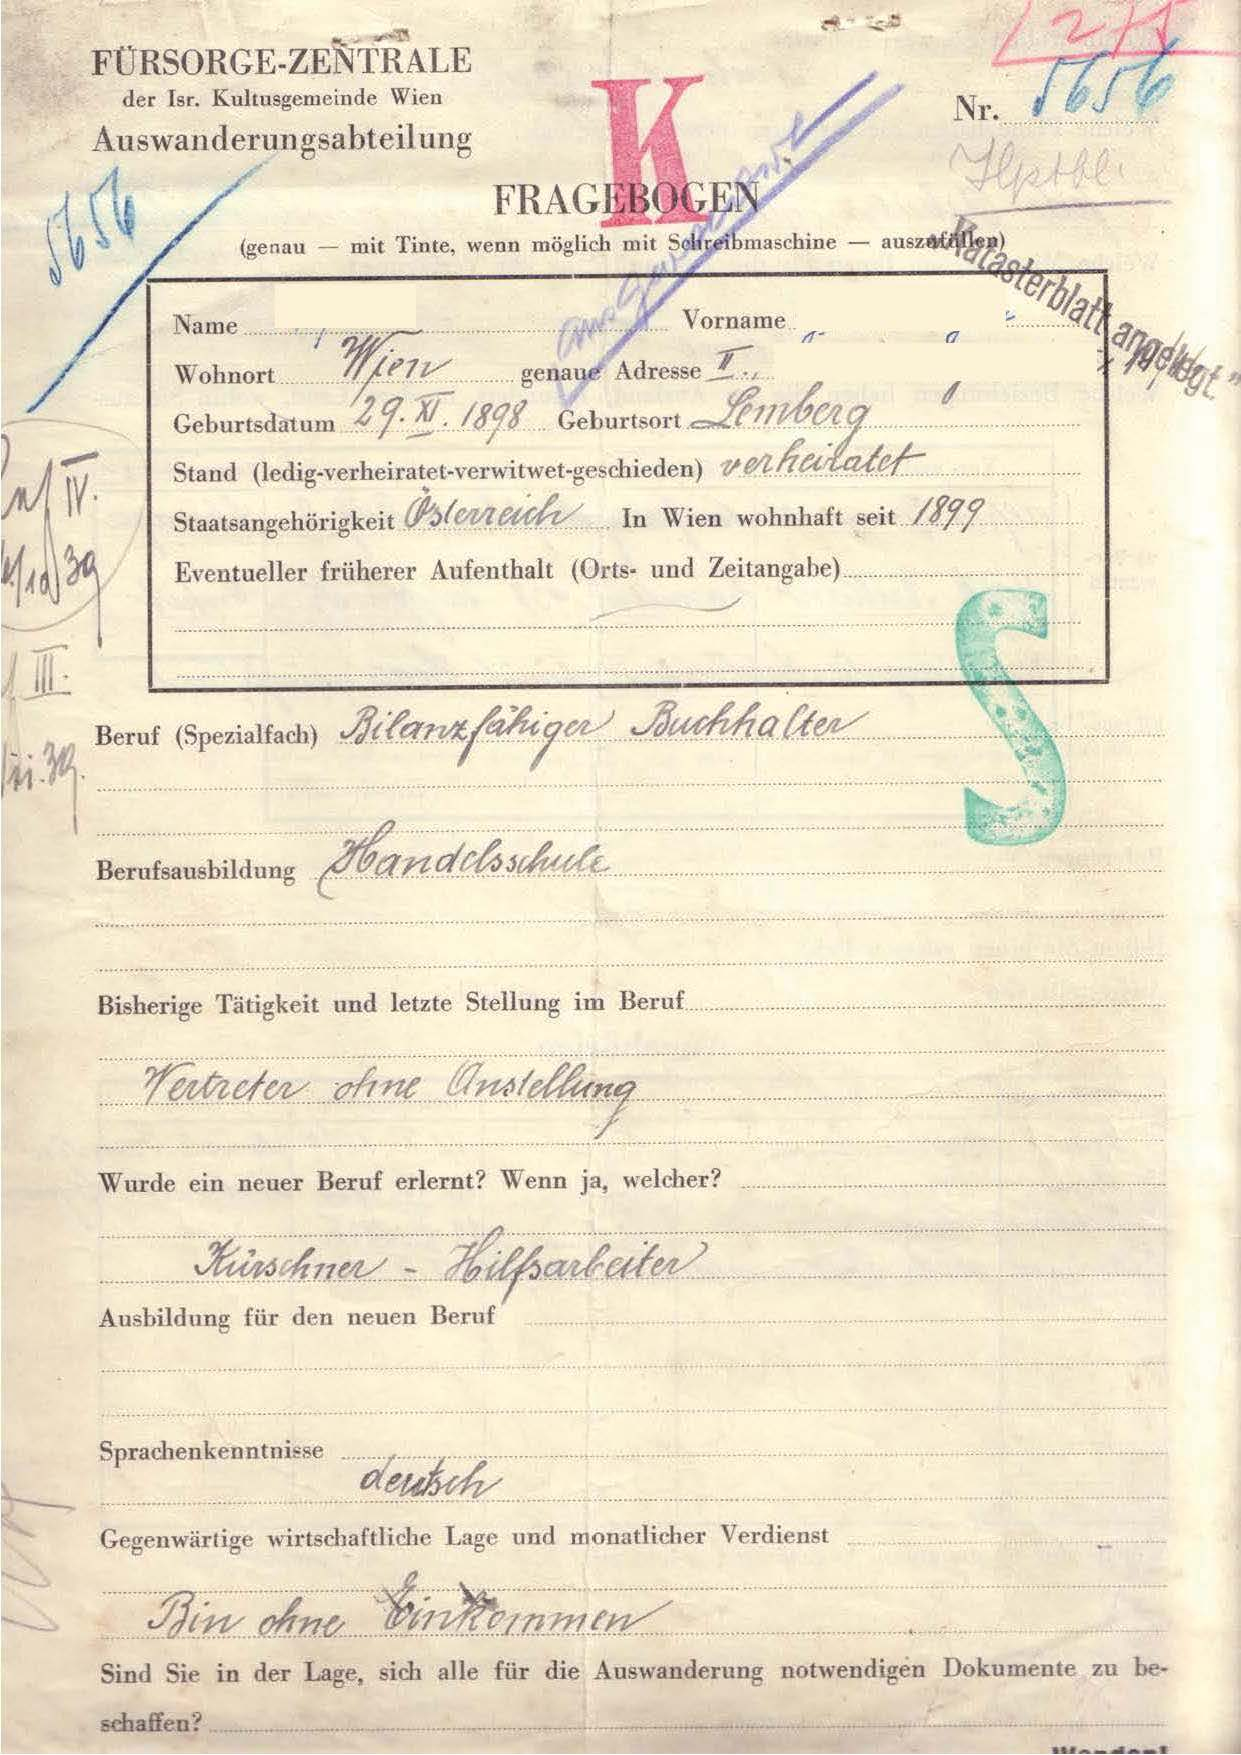 275
FÜRSORGE-ZENTRALE
der Isr. Kultusgemeinde Wien
Auswanderungsabteilung
K
Nr. 5656
Hptbl.
5656
FRAGEBOGEN
(genau — mit Tinte, wenn möglich mit Schreibmaschine — auszufüllen)
"Katasterblatt angelegt."
Name
Vorname
Wohnort Wien genaue Adresse II.,
Geburtsdatum 29. XI. 1898 Geburtsort Lemberg
Stand (ledig-verheiratet-verwitwet-geschieden) verheiratet
Staatsangehörigkeit Österreich In Wien wohnhaft seit 1899
Eventueller früherer Aufenthalt (Orts- und Zeitangabe)
IV.
39
III.
39.
S
Beruf (Spezialfach) Bilanzfähiger Buchhalter
Berufsausbildung Handelsschule
Bisherige Tätigkeit und letzte Stellung im Beruf
Vertreter ohne Anstellung
Wurde ein neuer Beruf erlernt? Wenn ja, welcher?
Kürschner - Hilfsarbeiter
Ausbildung für den neuen Beruf
Sprachenkenntnisse
deutsch
Gegenwärtige wirtschaftliche Lage und monatlicher Verdienst
Bin ohne Einkommen
Sind Sie in der Lage, sich alle für die Auswanderung notwendigen Dokumente zu be-
schaffen?
Wenden!